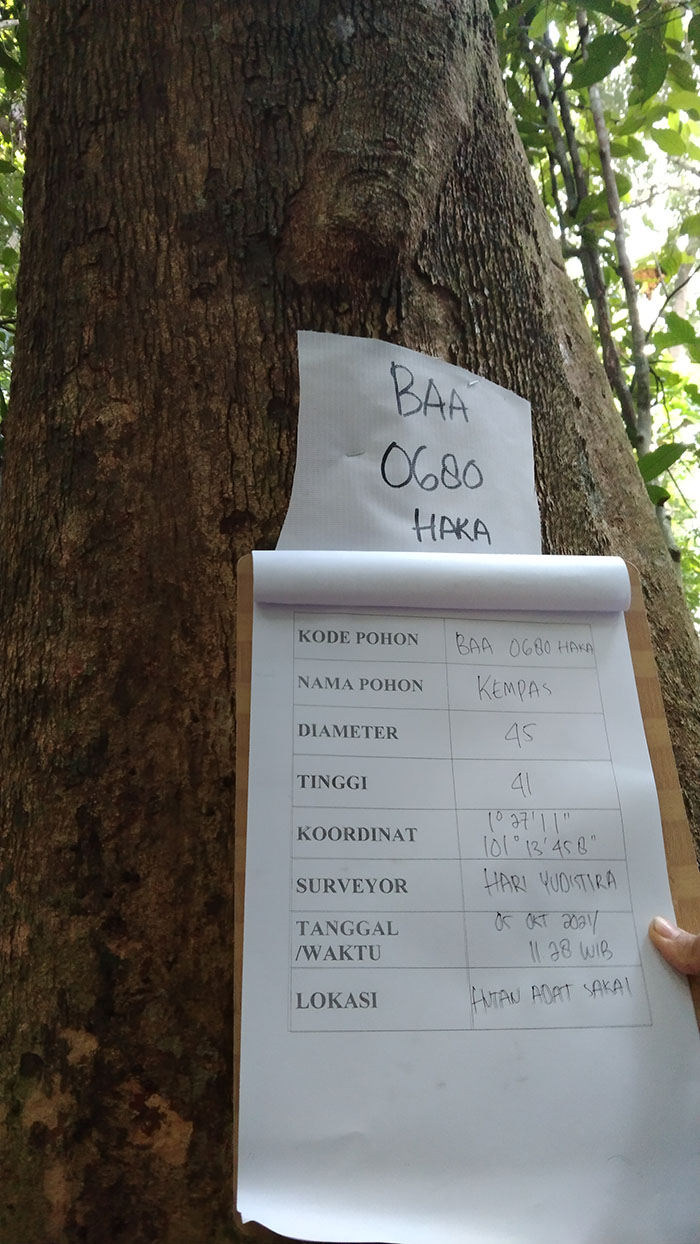 BAA
0680
HAKA
KODE POHON BAA 0680 HAKA
NAMA POHON KEMPAS
DIAMETER 45
TINGGI 41
KOORDINAT 1° 27' 11"
101° 13' 45 B"
SURVEYOR HARI YUDISTIRA
TANGGAL 05 OKT 2021/
/WAKTU 11 28 WIB
LOKASI HUTAN ADAT SAKAI